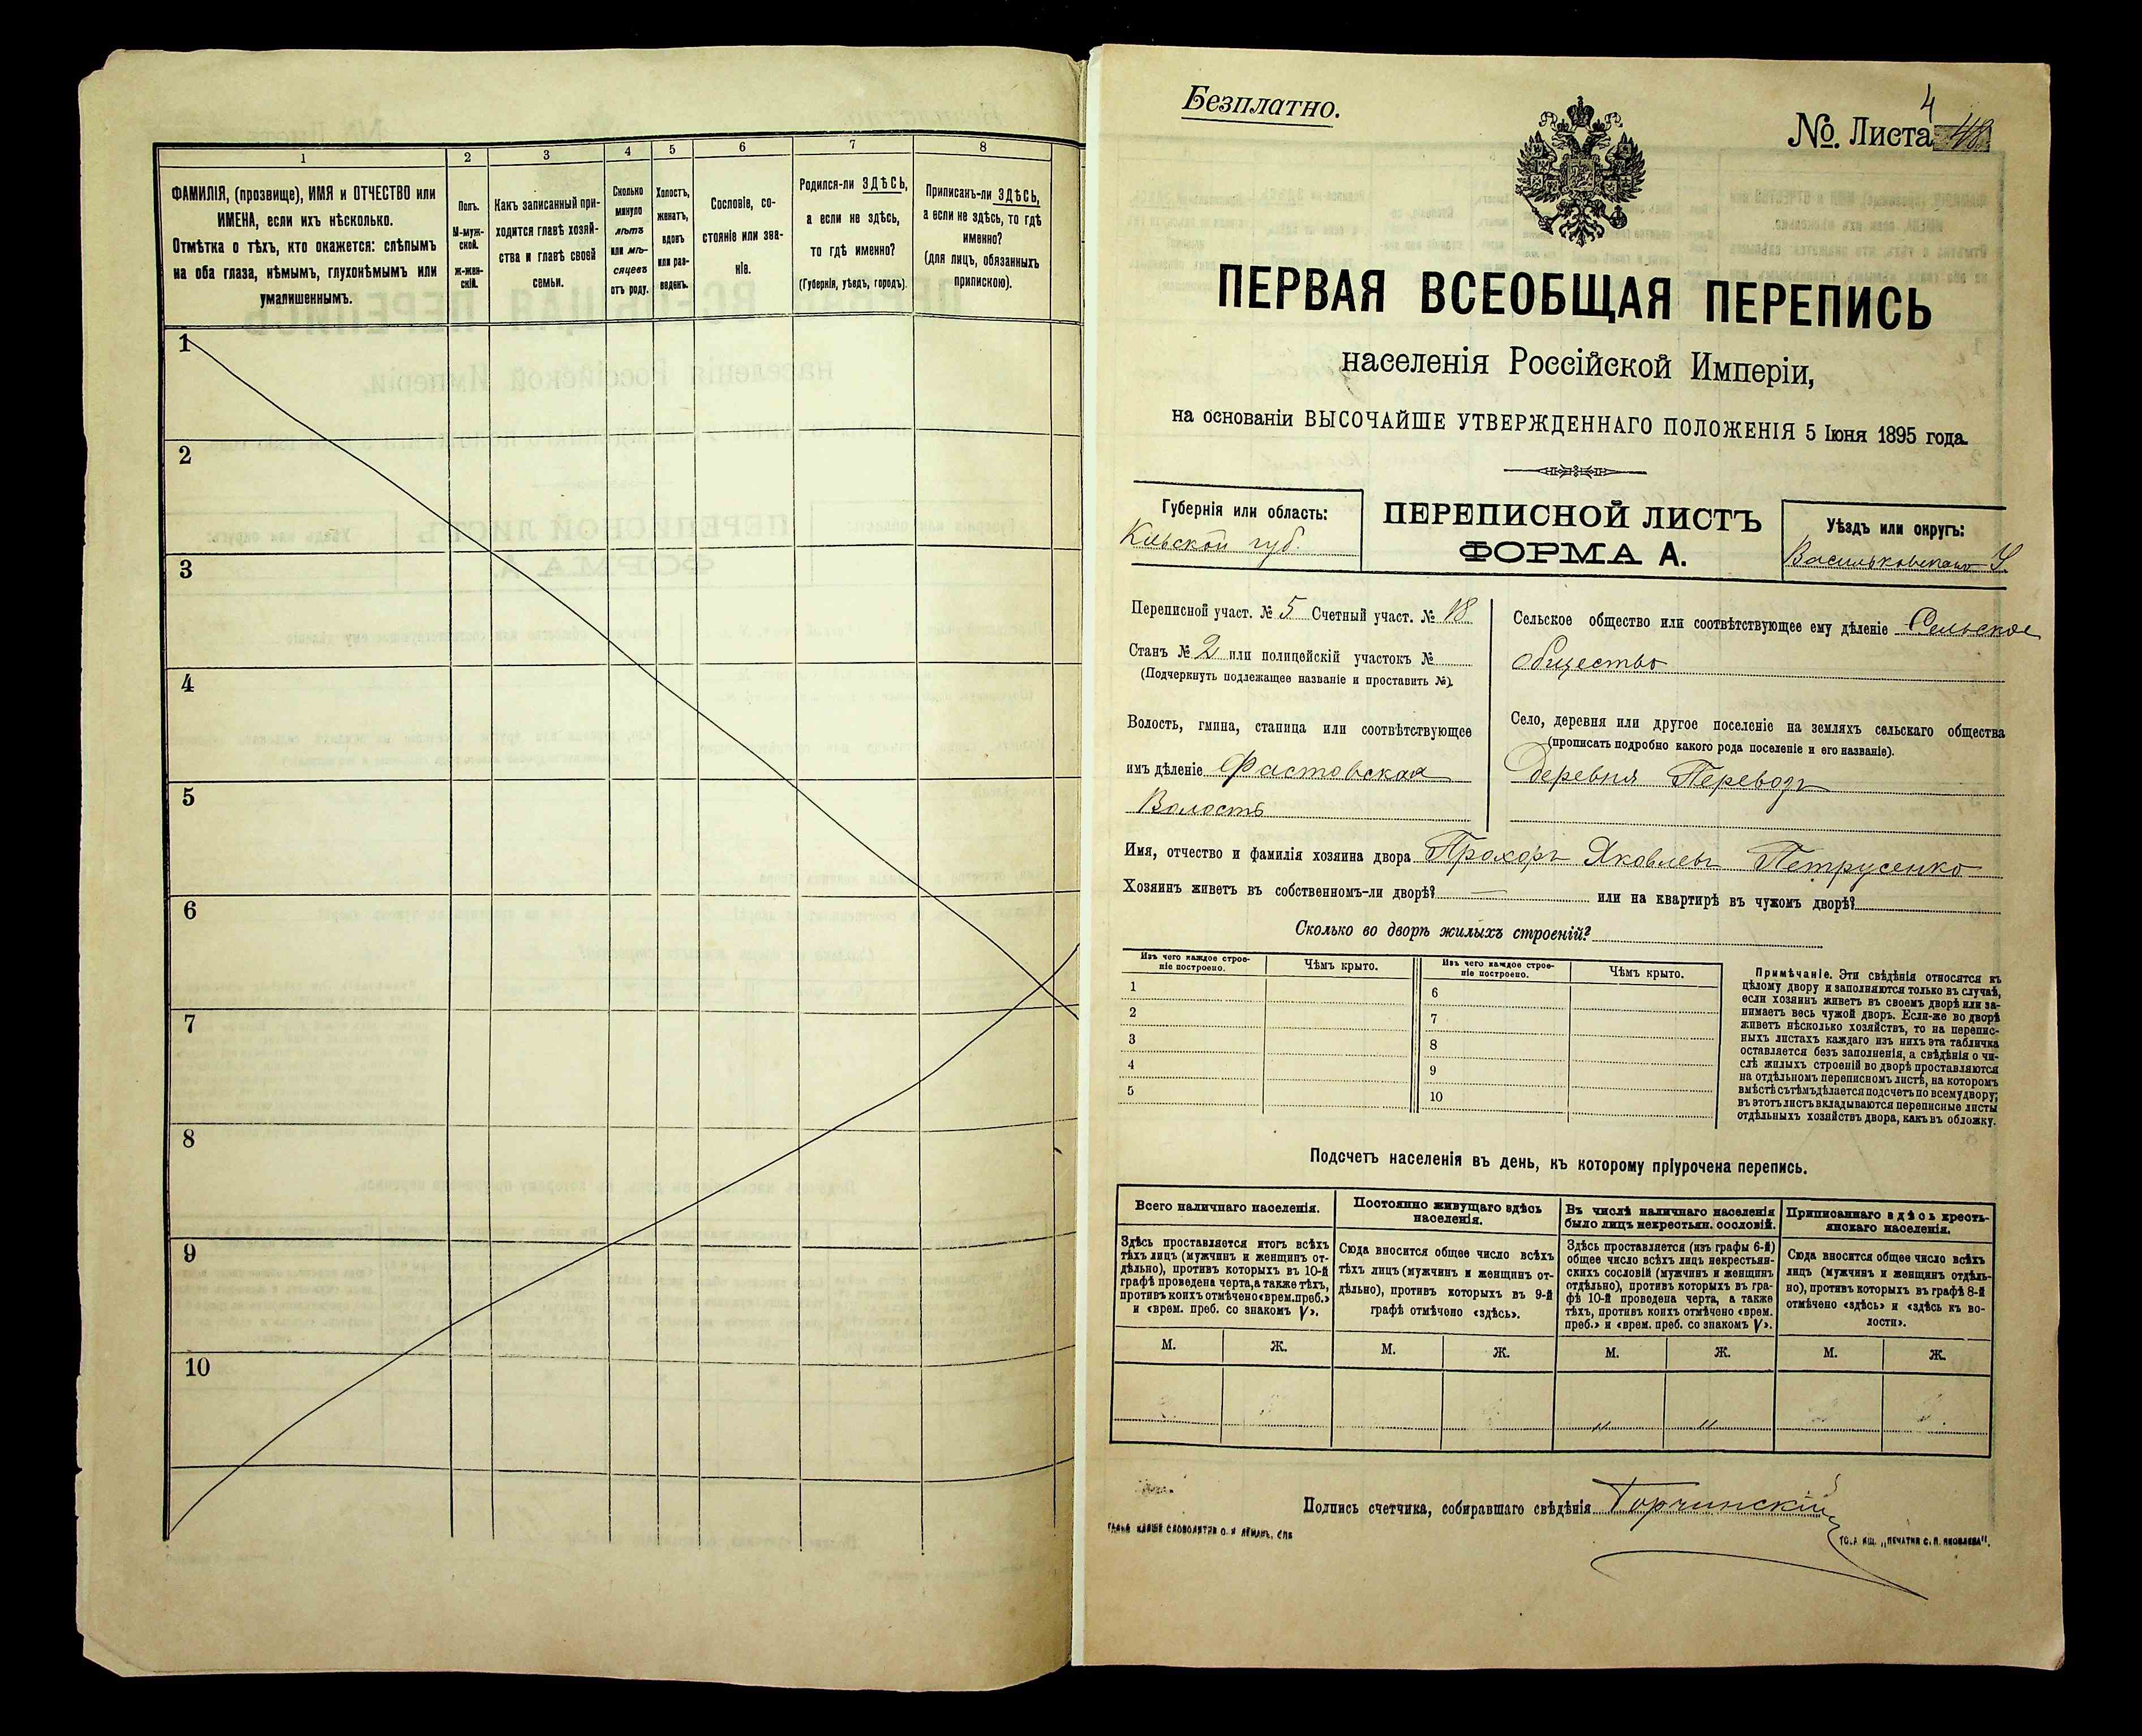 1
2
3
4
5
6
7
8
ФАМИЛІЯ, (прозвище), ИМЯ и ОТЧЕСТВО или
ИМЕНА, если ихъ нѣсколько.
Отмѣтка о тѣхъ, кто окажется: слѣпымъ
на оба глаза, нѣмымъ, глухонѣмымъ или
умалишеннымъ.
Полъ.
М-муж-
ской.
ж-жен-
скій.
Какъ записанный при-
ходится главѣ хозяй-
ства и главѣ своей
семьи.
Сколько
минуло
лѣтъ
или мѣ-
сяцевъ
отъ роду.
Холостъ,
женатъ,
вдовъ
или раз-
веденъ.
Сословіе, со-
стояніе или зва-
ніе.
Родился-ли ЗДѢСЬ,
а если не здѣсь,
то гдѣ именно?
(Губернія, уѣздъ, городъ).
Приписанъ-ли ЗДѢСЬ,
а если не здѣсь, то гдѣ
именно?
(для лицъ, обязанныхъ
припискою).
1
2
3
4
5
6
7
8
9
10
Безплатно.
4
№. Листа 48
ПЕРВАЯ ВСЕОБЩАЯ ПЕРЕПИСЬ
населенія Россійской Имперіи,
на основаніи ВЫСОЧАЙШЕ УТВЕРЖДЕННАГО ПОЛОЖЕНІЯ 5 Іюня 1895 года.
Губернія или область:
Кіевской губ.
ПЕРЕПИСНОЙ ЛИСТЪ
ФОРМА А.
Уѣздъ или округъ:
Васильковскаго У.
Переписной участ. № 5 Счетный участ. № 18
Станъ № 2 или полицейскій участокъ №
(Подчеркнуть подлежащее названіе и проставить №).
Волость, гмина, станица или соотвѣтствующее
имъ дѣленіе Фастовская
Волость
Сельское общество или соотвѣтствующее ему дѣленіе Сельское
общество
Село, деревня или другое поселеніе на земляхъ сельскаго общества
(прописать подробно какого рода поселеніе и его названіе).
Деревня Переводъ
Имя, отчество и фамилія хозяина двора Прохоръ Яковлевъ Петрусенко
Хозяинъ живетъ въ собственномъ-ли дворѣ? — или на квартирѣ въ чужомъ дворѣ?
Сколько во дворѣ жилыхъ строеній?
Изъ чего каждое строе-
ніе построено.
Чѣмъ крыто.
Изъ чего каждое строе-
ніе построено.
Чѣмъ крыто.
1
2
3
4
5
6
7
8
9
10
Примѣчаніе. Эти свѣдѣнія относятся къ
цѣлому двору и заполняются только въ случаѣ,
если хозяинъ живетъ въ своемъ дворѣ или за-
нимаетъ весь чужой дворъ. Если-же во дворѣ
живетъ нѣсколько хозяйствъ, то на перепис-
ныхъ листахъ каждаго изъ нихъ эта табличка
оставляется безъ заполненія, а свѣдѣнія о чи-
слѣ жилыхъ строеній во дворѣ проставляются
на отдѣльномъ переписномъ листѣ, на которомъ
вмѣстѣ съ тѣмъ дѣлается подсчетъ по всему двору;
въ этотъ листъ вкладываются переписные листы
отдѣльныхъ хозяйствъ двора, какъ въ обложку.
Подсчетъ населенія въ день, къ которому пріурочена перепись.
Всего наличнаго населенія.
Здѣсь проставляется итогъ всѣхъ
тѣхъ лицъ (мужчинъ и женщинъ от-
дѣльно), противъ которыхъ въ 10-й
графѣ проведена черта, а также тѣхъ,
противъ коихъ отмѣчено «врем. преб.»
и «врем. преб. со знакомъ V».
М.
Ж.
Постоянно живущаго здѣсь
населенія.
Сюда вносится общее число всѣхъ
тѣхъ лицъ (мужчинъ и женщинъ от-
дѣльно), противъ которыхъ въ 9-й
графѣ отмѣчено «здѣсь».
М.
Ж.
Въ числѣ наличнаго населенія
было лицъ некрестьян. сословій.
Здѣсь проставляется (изъ графы 6-й)
общее число всѣхъ лицъ некрестьян-
скихъ сословій (мужчинъ и женщинъ
отдѣльно), противъ которыхъ въ гра-
фѣ 10-й проведена черта, а также
тѣхъ, противъ коихъ отмѣчено «врем.
преб.» и «врем. преб. со знакомъ V».
М.
Ж.
Приписаннаго здѣсь кресть-
янскаго населенія.
Сюда вносится общее число всѣхъ
лицъ (мужчинъ и женщинъ отдѣль-
но), противъ которыхъ въ графѣ 8-й
отмѣчено «здѣсь» и «здѣсь къ во-
лости».
М.
Ж.
" "
Подпись счетчика, собиравшаго свѣдѣнія Горчинскій
ТО-А ИЩ. „ПЕЧАТНЯ С. П. ЯКОВЛЕВА".